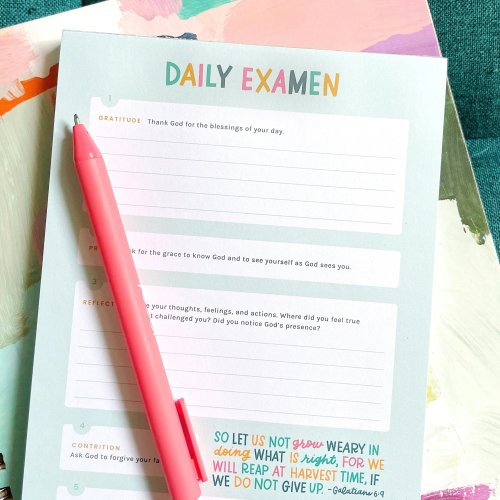 DAILY EXAMEN
1
GRATITUDE Thank God for the blessings of your day.
for the grace to know God and to see yourself as God sees you.
3
REFLECT your thoughts, feelings, and actions. Where did you feel true
challenged you? Did you notice God's presence?
4
CONTRITION
Ask God to forgive your
SO LET US NOT grow WEARY IN
doing WHAT IS right, FOR WE
WILL REAP AT HARVEST TIME, IF
WE DO NOT GIVE UP. -Galatians 6:9
5